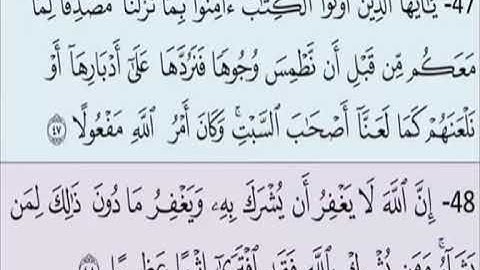 47- يَٰٓأَيُّهَا ٱلَّذِينَ أُوتُوا۟ ٱلْكِتَٰبَ ءَامِنُوا۟ بِمَا نَزَّلْنَا مُصَدِّقًا لِّمَا
مَعَكُم مِّن قَبْلِ أَن نَّطْمِسَ وُجُوهًا فَنَرُدَّهَا عَلَىٰٓ أَدْبَارِهَآ أَوْ
نَلْعَنَهُمْ كَمَا لَعَنَّآ أَصْحَٰبَ ٱلسَّبْتِ ۚ وَكَانَ أَمْرُ ٱللَّهِ مَفْعُولًا ٤٧
48- إِنَّ ٱللَّهَ لَا يَغْفِرُ أَن يُشْرَكَ بِهِۦ وَيَغْفِرُ مَا دُونَ ذَٰلِكَ لِمَن
يَشَآءُ ۚ وَمَن يُشْرِكْ بِٱللَّهِ فَقَدِ ٱفْتَرَىٰٓ إِثْمًا عَظِيمًا ٤٨